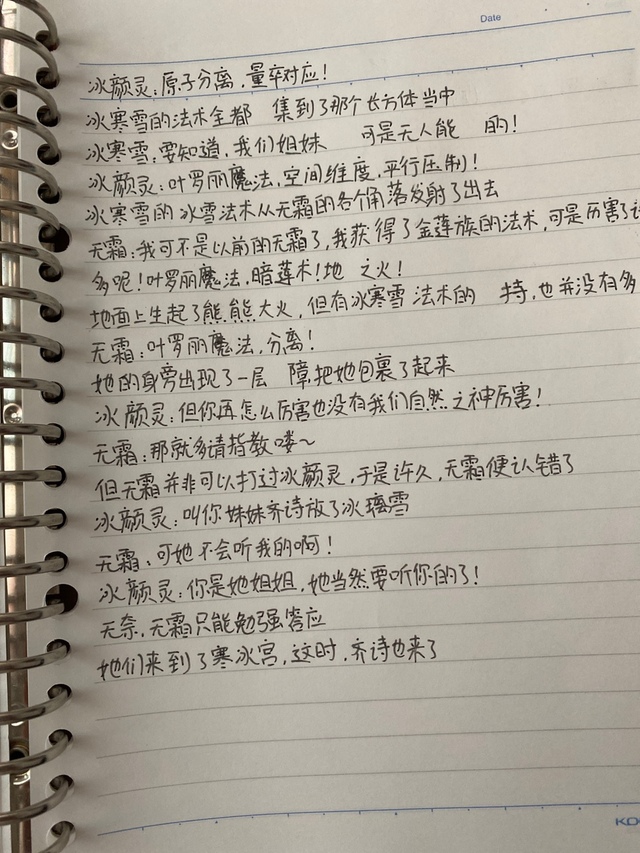 Date
冰颜灵：原子分离，量卒对应！
冰寒雪的法术全都 集到了那个长方体当中
冰寒雪：要知道，我们姐妹 可是无人能 的！
冰颜灵：叶罗丽魔法，空间维度，平行压制！
冰寒雪的冰雪法术从无霜的各个角落发射了出去
无霜：我可不是以前的无霜了，我获得了金莲族的法术，可是厉害了
多呢！叶罗丽魔法，暗莲术！地 之火！
地面上生起了熊熊大火，但有冰寒雪 法术的 持，也并没有多
无霜：叶罗丽魔法，分离！
她的身旁出现了一层 障，把她包裹了起来
冰颜灵：但你再怎么厉害也没有我们自然之神厉害！
无霜：那就多请指教喽~
但无霜并非可以打过冰颜灵，于是许久，无霜便认错了
冰颜灵：叫你妹妹齐诗放了冰璃雪
无霜：可她不会听我的啊！
冰颜灵：你是她姐姐，她当然要听你的了！
无奈，无霜只能勉强答应
她们来到了寒冰宫，这时，齐诗也来了